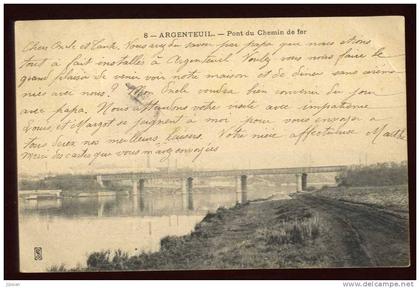 8 - ARGENTEUIL. - Pont du Chemin de fer
Cher Oncle et Tante, Vous avez du savoir par papa que nous étions
tout à fait installés à Argenteuil Voulez vous nous faire le
grand plaisir de venir voir notre maison et de diner sans
nies avec nous? Mon Oncle voudra bien convenir du jour
avec papa. Nous attendons votre visite avec impatience
Louis et Margot se joignent à moi pour vous envoyer à
tous nos meilleurs baisers. Votre nièce affectueuse
Merci des cartes que vous m'avez envoyées
delcampe.net